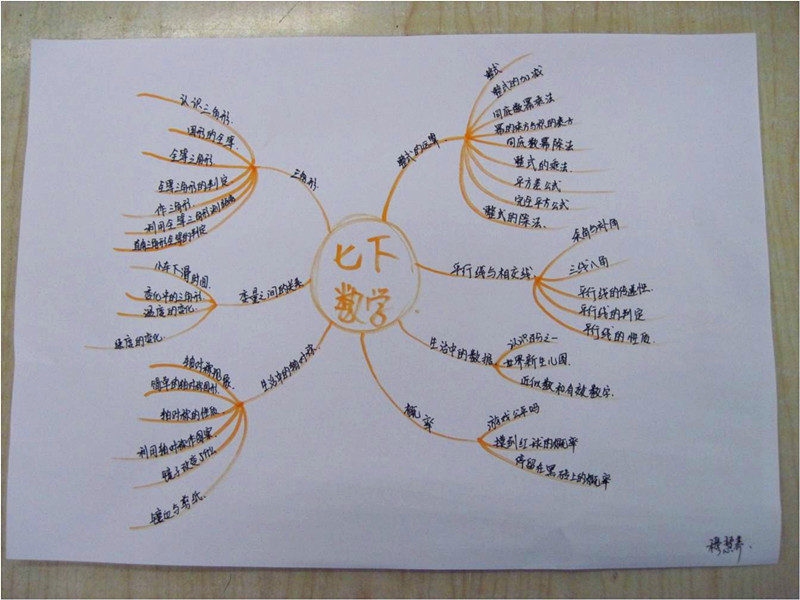 七下
数学
整式的运算
整式
整式的加减
同底数幂乘法
幂的乘方与积的乘方
同底数幂除法
整式的乘法
平方差公式
完全平方公式
整式的除法
平行线与相交线
余角与补角
三线八角
平行线的传递性
平行线的判定
平行线的性质
生活中的数据
认识百万分之一
世界新生儿图
近似数和有效数字
概率
游戏公平吗
摸到红球的概率
停留在黑砖上的概率
生活中的轴对称
轴对称现象
简单的轴对称图形
轴对称的性质
利用轴对称作图案
镜子改变了什么
镶边与剪纸
变量之间的关系
小车下滑时间
变化中的三角形
温度的变化
速度的变化
三角形
认识三角形
图形的全等
全等三角形
全等三角形的判定
作三角形
利用全等三角形测距离
直角三角形全等的判定